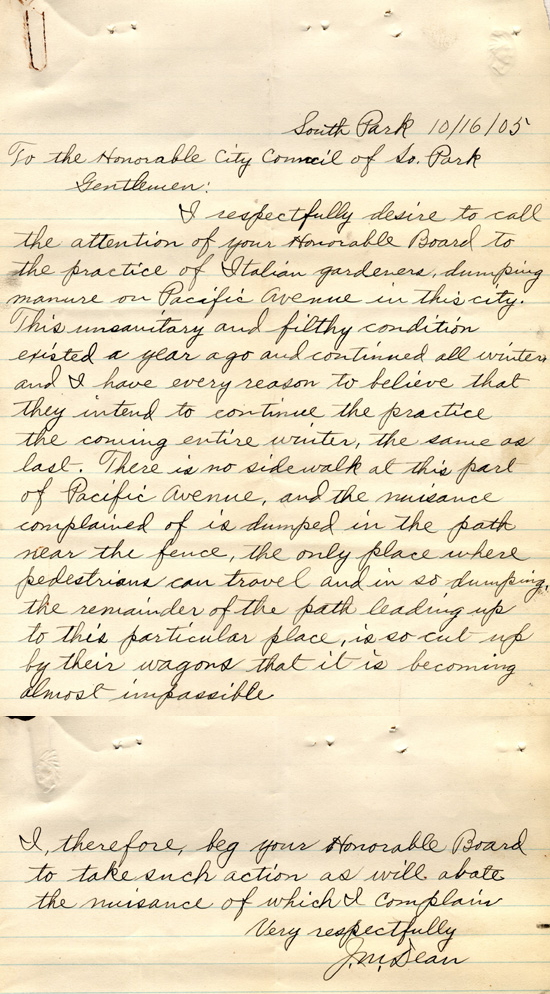 South Park 10/16/05
To the Honorable City Council of So. Park
Gentlemen:
I respectfully desire to call
the attention of your Honorable Board to
the practice of Italian gardeners, dumping
manure on Pacific Avenue in this city.
This unsanitary and filthy condition
existed a year ago and continued all winter,
and I have every reason to believe that
they intend to continue the practice
the coming entire winter, the same as
last. There is no sidewalk at this part
of Pacific Avenue, and the nuisance
complained of is dumped in the path
near the fence, the only place where
pedestrians can travel and in so dumping,
the remainder of the path leading up
to this particular place, is so cut up
by their wagons that it is becoming
almost impassible
I, therefore, beg your Honorable Board
to take such action as will abate
the nuisance of which I complain
Very respectfully
J.M. Dean